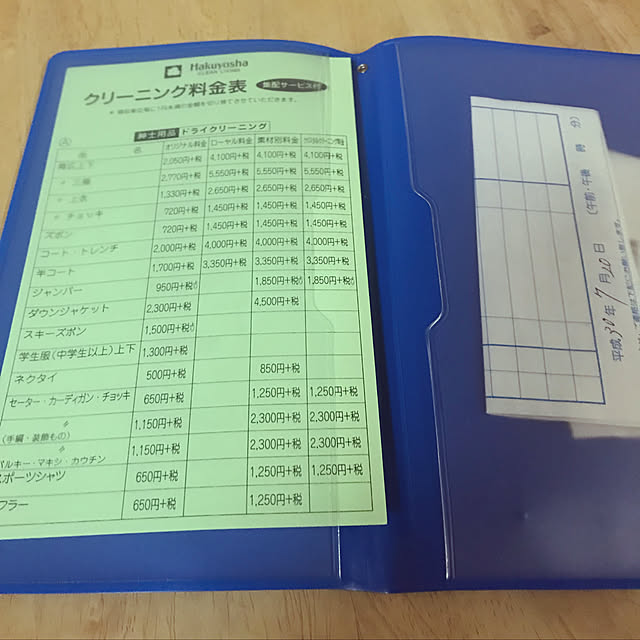 Hakuyosha
CLEAN LIVING
クリーニング料金表 集配サービス付
＊領収単位毎に10円未満の金額を切り捨てさせていただきます。
Ⓐ 紳士用品 ドライクリーニング
品 名 オリジナル料金 ローヤル料金 素材別料金
背広上下 2,050円+税 4,100円+税 4,100円+税 4,100円+税
〃 三揃 2,770円+税 5,550円+税 5,550円+税 5,550円+税
〃 上衣 1,330円+税 2,650円+税 2,650円+税 2,650円+税
〃 チョッキ 720円+税 1,450円+税 1,450円+税 1,450円+税
ズボン 720円+税 1,450円+税 1,450円+税 1,450円+税
コート・トレンチ 2,000円+税 4,000円+税 4,000円+税 4,000円+税
半コート 1,700円+税 3,350円+税 3,350円+税 3,350円+税
ジャンパー 950円+税 1,850円+税 1,850円+税
ダウンジャケット 2,300円+税 4,500円+税
スキーズボン 1,500円+税
学生服(中学生以上)上下 1,300円+税
ネクタイ 500円+税 850円+税
セーター・カーディガン・チョッキ 650円+税 1,250円+税 1,250円+税
〃
(手編・装飾もの) 1,150円+税 2,300円+税 2,300円+税
〃
バルキー・マキシ・カウチン 1,150円+税 2,300円+税 2,300円+税
スポーツシャツ 650円+税 1,250円+税 1,250円+税
フラー 650円+税 1,250円+税
平成30年7月20日 (午前・午後 時 分)